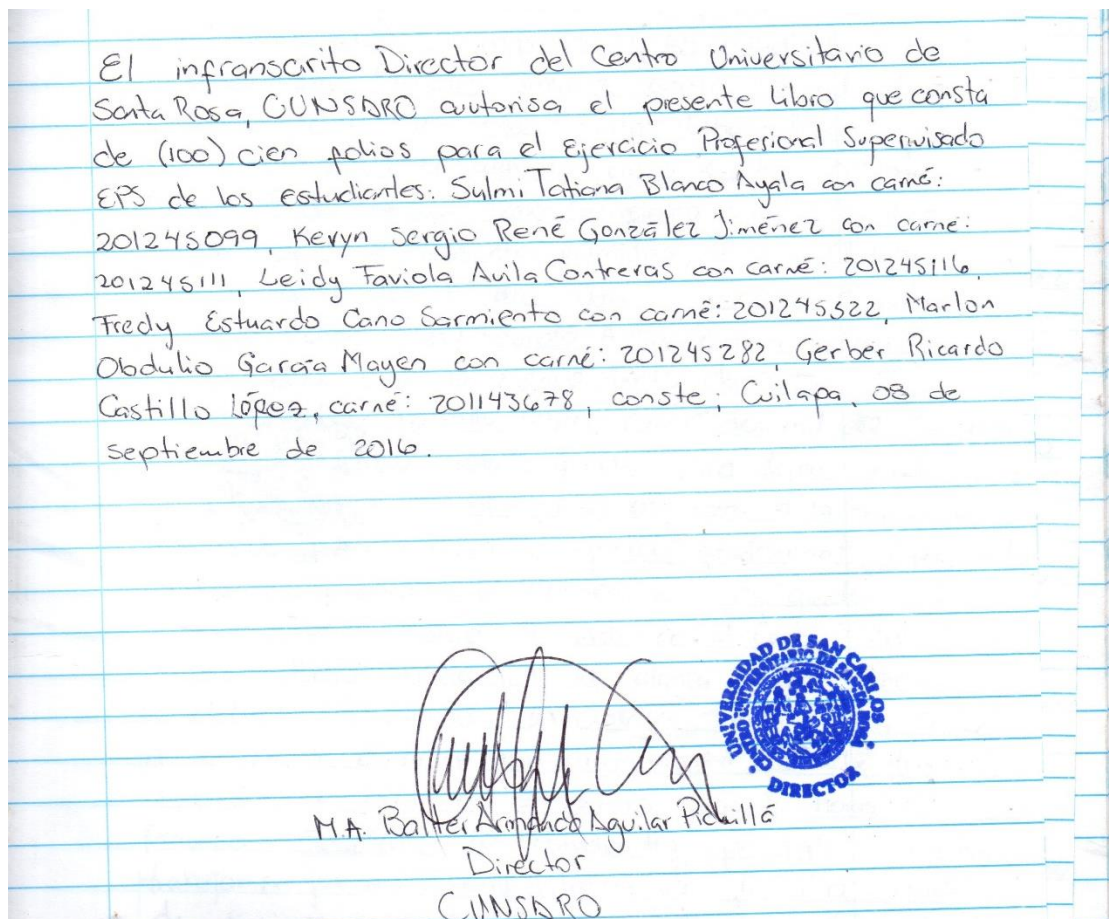 El infranscrito Director del Centro Universitario de
Santa Rosa, CUNSARO autorisa el presente Libro que consta
de (100) cien folios para el Ejercicio Profesional Supervisado
EPS de los estudiantes: Sulmi Tatiana Blanco Ayala con carné:
201245099, Kevyn Sergio René González Jiménez con carné:
201245111, Leidy Faviola Avila Contreras con carné: 201245116,
Fredy Estuardo Cano Sarmiento con carné: 201245522, Marlon
Obdulio García Mayen con carné: 201245282, Gerber Ricardo
Castillo López, carné: 201143678, conste; Cuilapa, 08 de
septiembre de 2016.
UNIVERSIDAD DE SAN CARLOS
CENTRO UNIVERSITARIO DE SANTA ROSA
DIRECTOR
M.A. Balter Armando Aguilar Pichillá
Director
CUNSARO